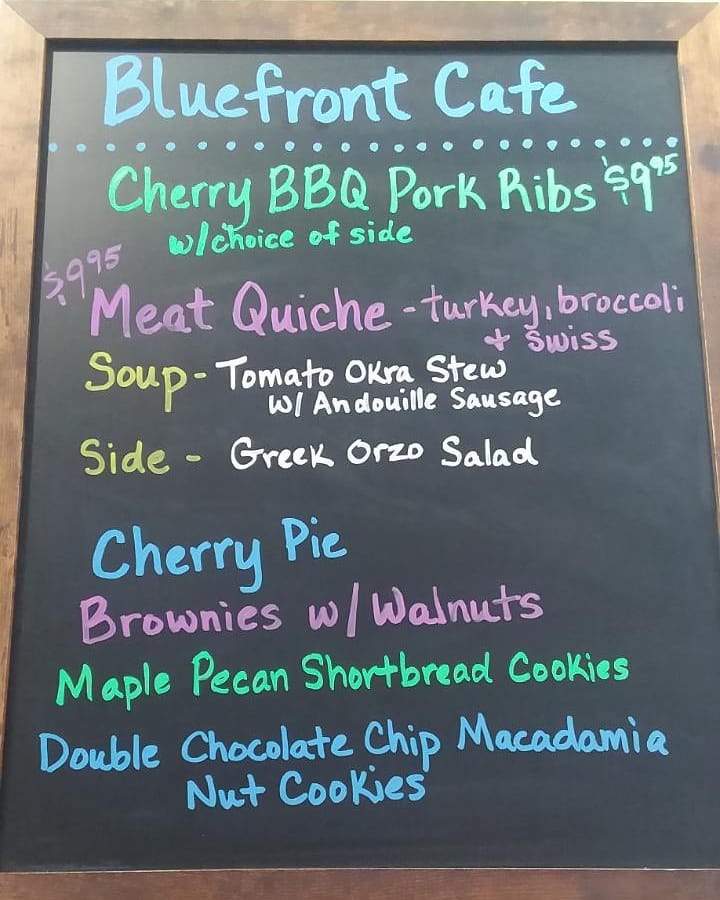 Bluefront Cafe
Cherry BBQ Pork Ribs $9.95
w/choice of side
$9.95
Meat Quiche - turkey, broccoli
+ Swiss
Soup - Tomato Okra Stew
w/ Andouille Sausage
Side - Greek Orzo Salad
Cherry Pie
Brownies w/ Walnuts
Maple Pecan Shortbread Cookies
Double Chocolate Chip Macadamia
Nut Cookies